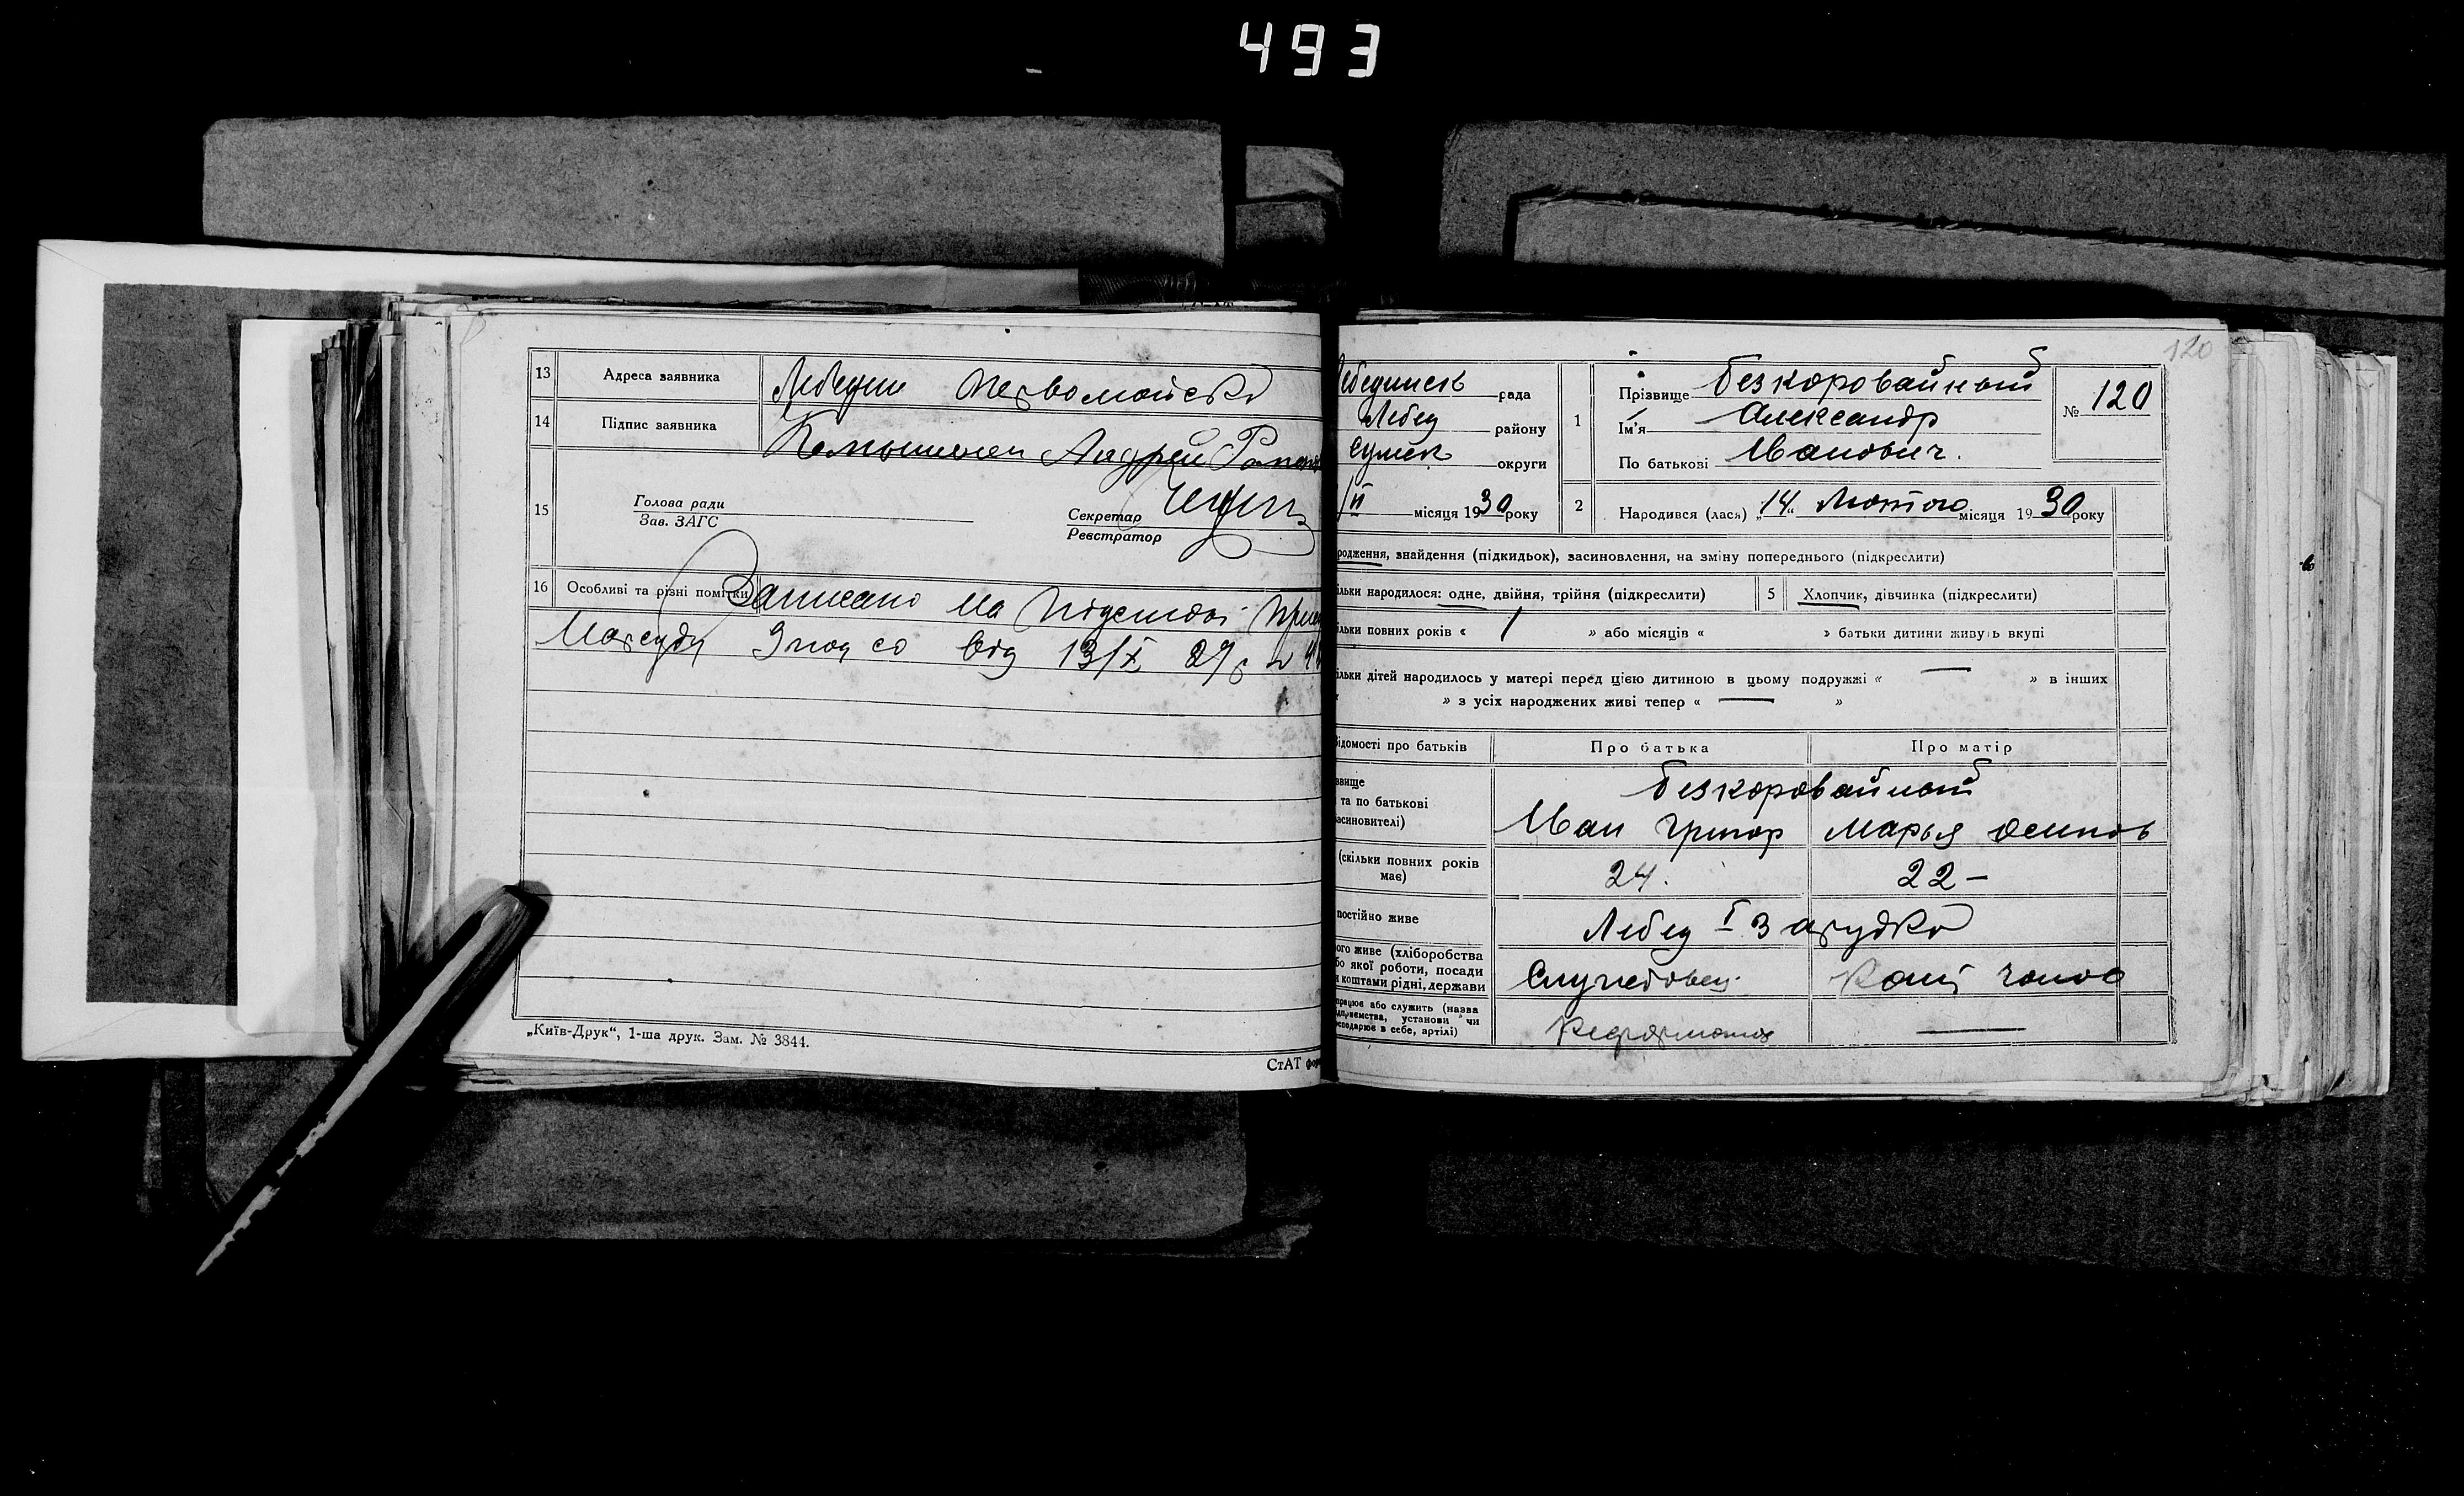 493
13 Адреса заявника Лебедин Первомайська
14 Підпис заявника Андрей
15 Голова ради
Зав. ЗАГС
Секретар
Реєстратор
16 Особливі та різні помітки Записано на підставі
від 13/X 29
„Київ-Друк“, 1-ша друк. Зам. № 3844.
СтАТ фор
120
Лебединськ рада
Лебед району
Сумск округи
/II місяця 1930 року
1 Прізвище Безкоровайный
Ім'я Александр
По батькові Иванович.
№ 120
2 Народився (лася) „14“ Лютого місяця 1930 року
родження, знайдення (підкидьок), засиновлення, на зміну попереднього (підкреслити)
ільки народилося: одне, двійня, трійня (підкреслити)
5 Хлопчик, дівчинка (підкреслити)
ільки повних років « 1 » або місяців « » батьки дитини живуть вкупі
ільки дітей народилось у матері перед цією дитиною в цьому подружжі « — » в інших
» з усіх народжених живі тепер « — »
ідомості про батьків Про батька Про матір
звище
та по батькові
асиновителі)
Безкоровайный
Иван Григор Марья Осипов
(скільки повних років
має)
24. 22 —
постійно живе
Лебед I
ого живе (хліборобства
бо якої роботи, посади
и коштами рідні, держави
Службовец
працює або служить (назва
ідприємства, установи чи
осподарює в себе, артілі)
—